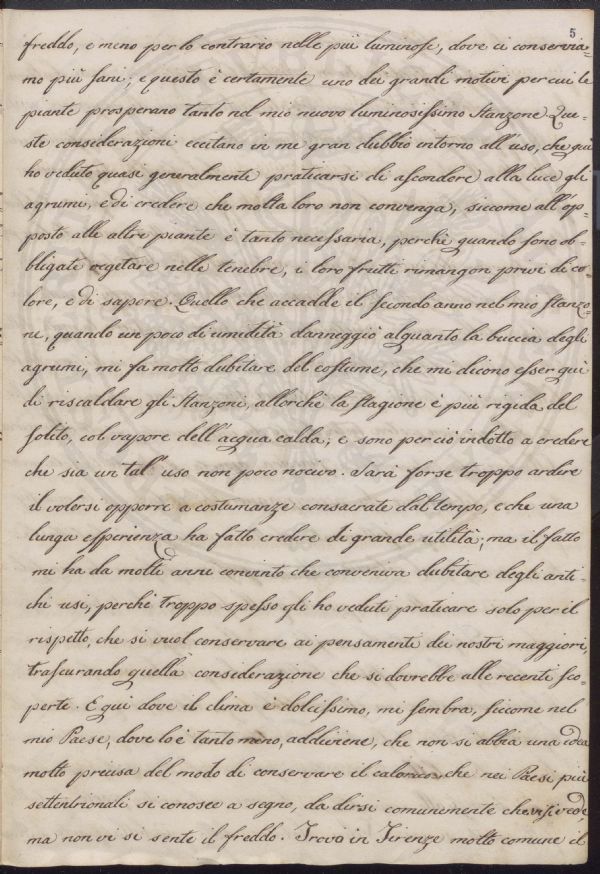 5
freddo, e meno per lo contrario nelle più luminose, dove ci conservia=
mo più sani; e questo è certamente uno dei grandi motivi per cui le
piante prosperano tanto nel mio nuovo luminosissimo Stanzone. Que=
ste considerazioni eccitano in me gran dubbio intorno all'uso, che qui
ho veduto quasi generalmente praticarsi di ascondere alla luce gli
agrumi, e di credere che molta loro non convenga, siccome all'op=
posto alle altre piante è tanto necessaria, perchè quando sono ob=
bligate vegetare nelle tenebre, i loro frutti rimangon privi di co=
lore, e di sapore. Quello che accadde il secondo anno nel mio stanzo=
ne, quando un poco di umidità danneggiò alquanto la buccia degli
agrumi, mi fa molto dubitare del costume, che mi dicono esser qui
di riscaldare gli Stanzoni, allorchè la stagione è più rigida del
solito, col vapore dell'acqua calda; e sono perciò indotto a credere
che sia un tal' uso non poco nocivo. Sarà forse troppo ardire
il volersi opporre a costumanze consacrate dal tempo, e che una
lunga esperienza ha fatto credere di grande utilità; ma il fatto
mi ha da molti anni convinto che conveniva dubitare degli anti=
chi usi, perchè troppo spesso gli ho veduti praticare solo per il
rispetto, che si vuol conservare ai pensamenti dei nostri maggiori,
trascurando quella considerazione che si dovrebbe alle recenti sco=
perte. E qui dove il clima è dolcissimo, mi sembra, siccome nel
mio Paese, dove lo è tanto meno, addiviene, che non si abbia una idea
molto precisa del modo di conservare il calorico, che nei Paesi più
settentrionali si conosce a segno, da dirsi comunemente che vi si vede,
ma non vi si sente il freddo. Trovo in Firenze molto comune il